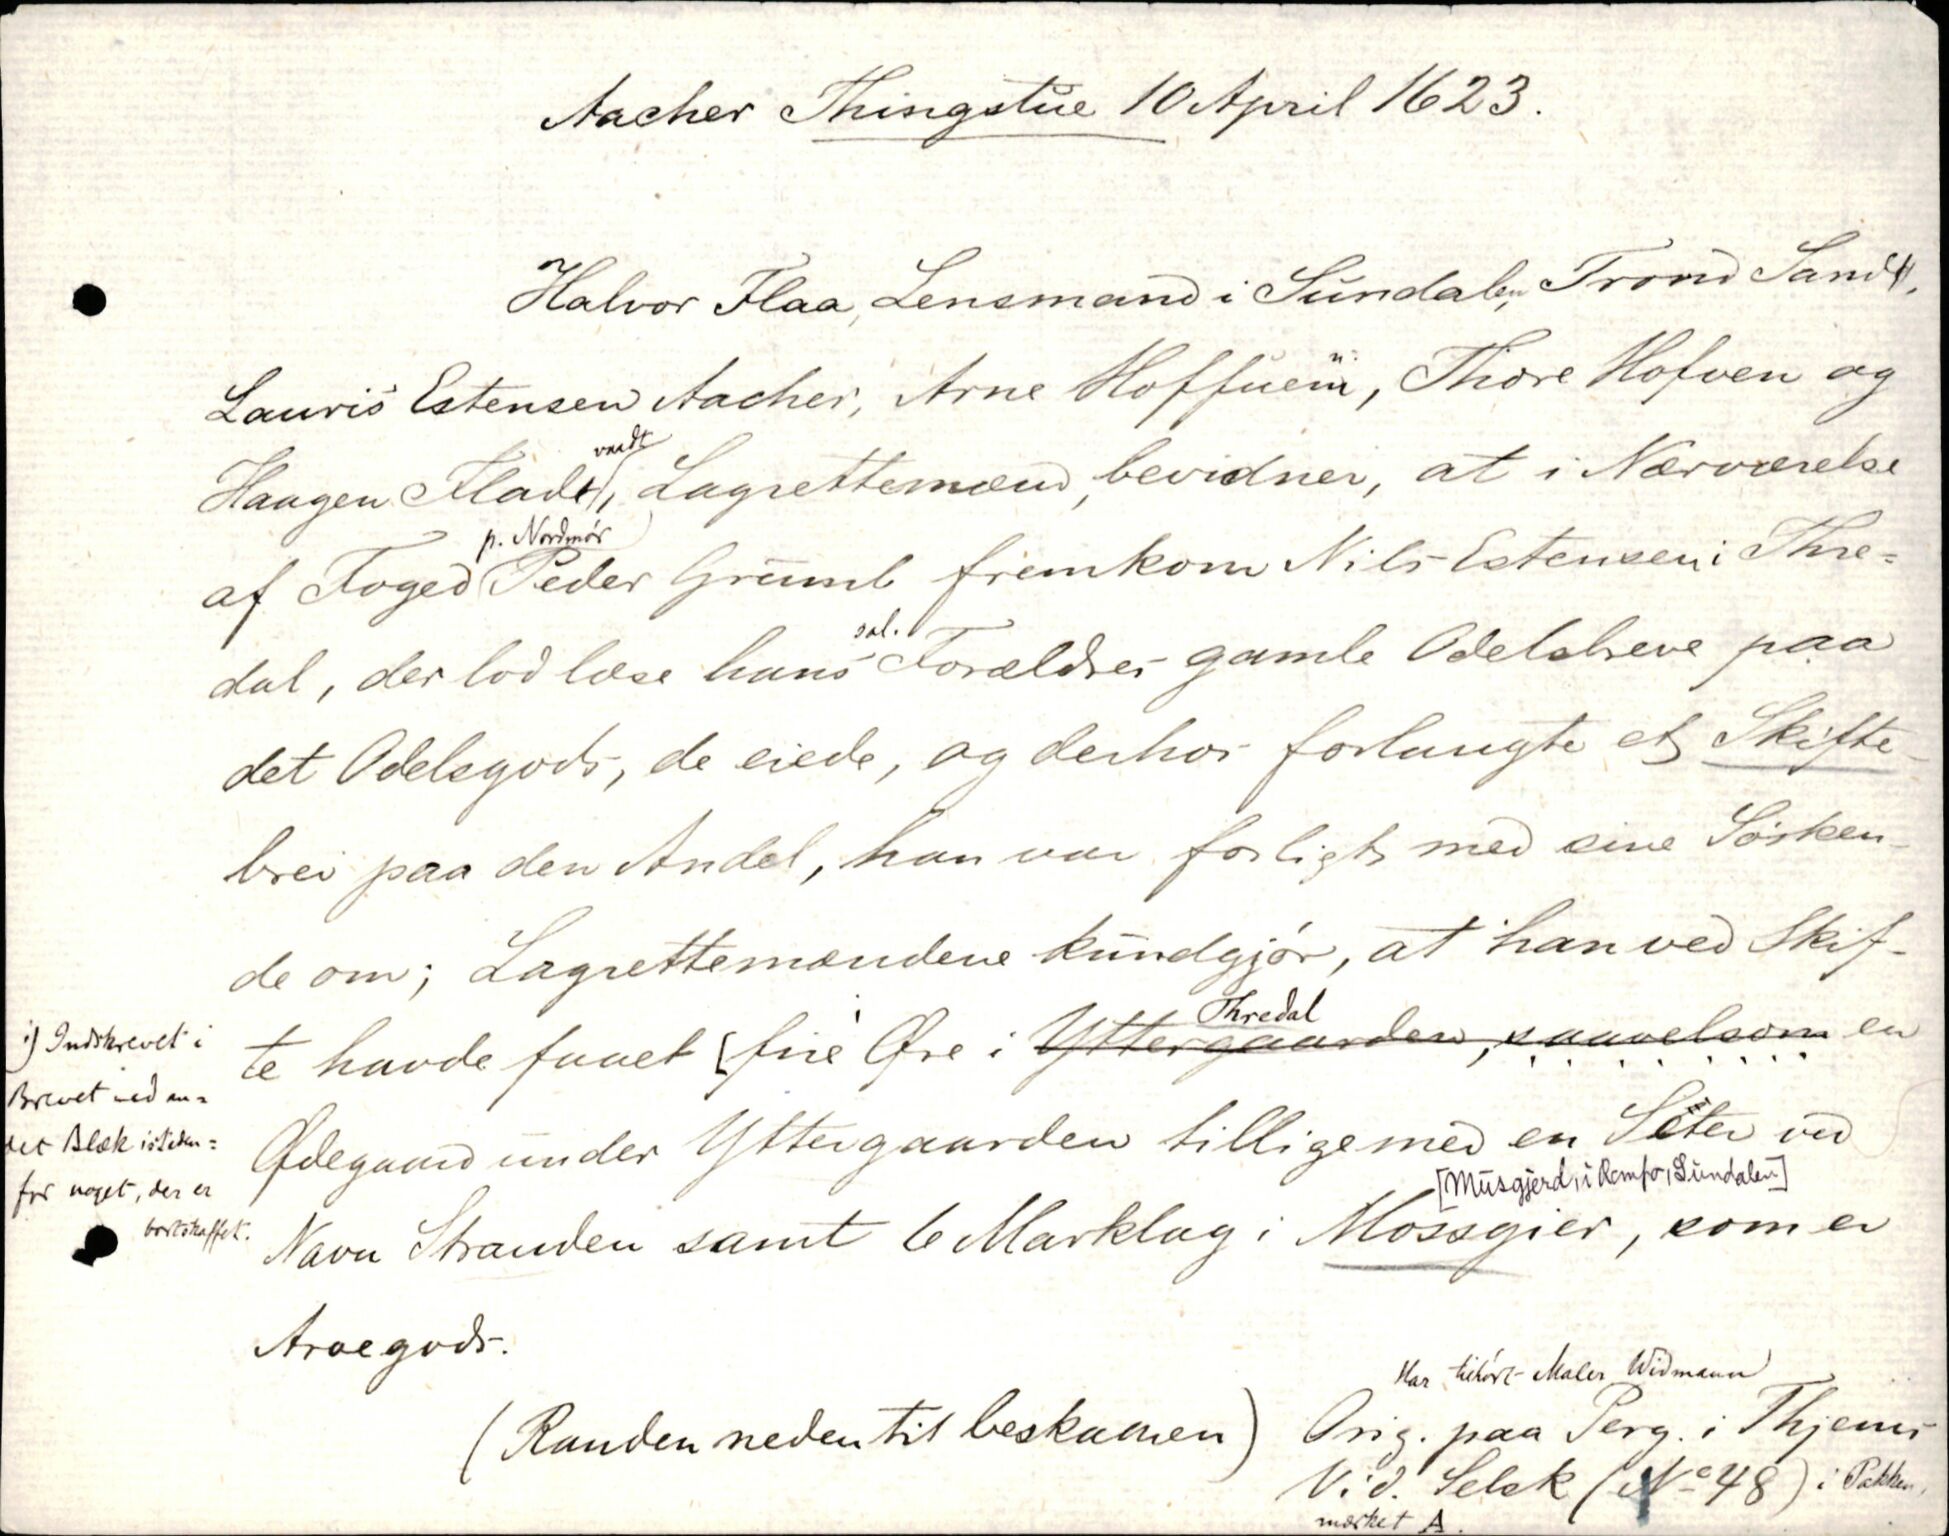 Aacher Thingstue 10 April 1623.
Halvor Flaa, Lensmand i Sundalen, Trond Sandt,
Lauris Estensen Aacher, Arne Hoffuenn, Thore Hofven og
vadt
Haagen Fladt, Lagrettemænd, bevidner, at i Nærværelse
p. Nordmør
af Foged Peder Grumb fremkom Nils Estensen i Thre=
sal.
dal, der lod læse hans Forældres gamle Odelsbreve paa
det Odelsgods, de eiede, og derhos forlangte et Skifte-
brev paa den Andel, han var forligt med sine Søsken-
de om; Lagrettemændene kundgjør, at han ved Skif-
Thredal
te havde faaet [fire Øre i Yttergaarden, saavelsom en
Ødegaard under Yttergaarden tilligemed en Seter ved
[Musgjerd, i Romfo, Sundalen]
Navn Stranden samt 6 Marklag i Mossgier, som er
Arvegods.
(Randen nedentil beskaaren)
1) Indskrevet i
Brevet med an=
det Blæk isteden=
for noget, der er
bortskaffet.
Har tilhørt Maler Widmann
Orig. paa Perg. i Thjems
Vid. Selsk (No 48) i Pakken,
mærket A.